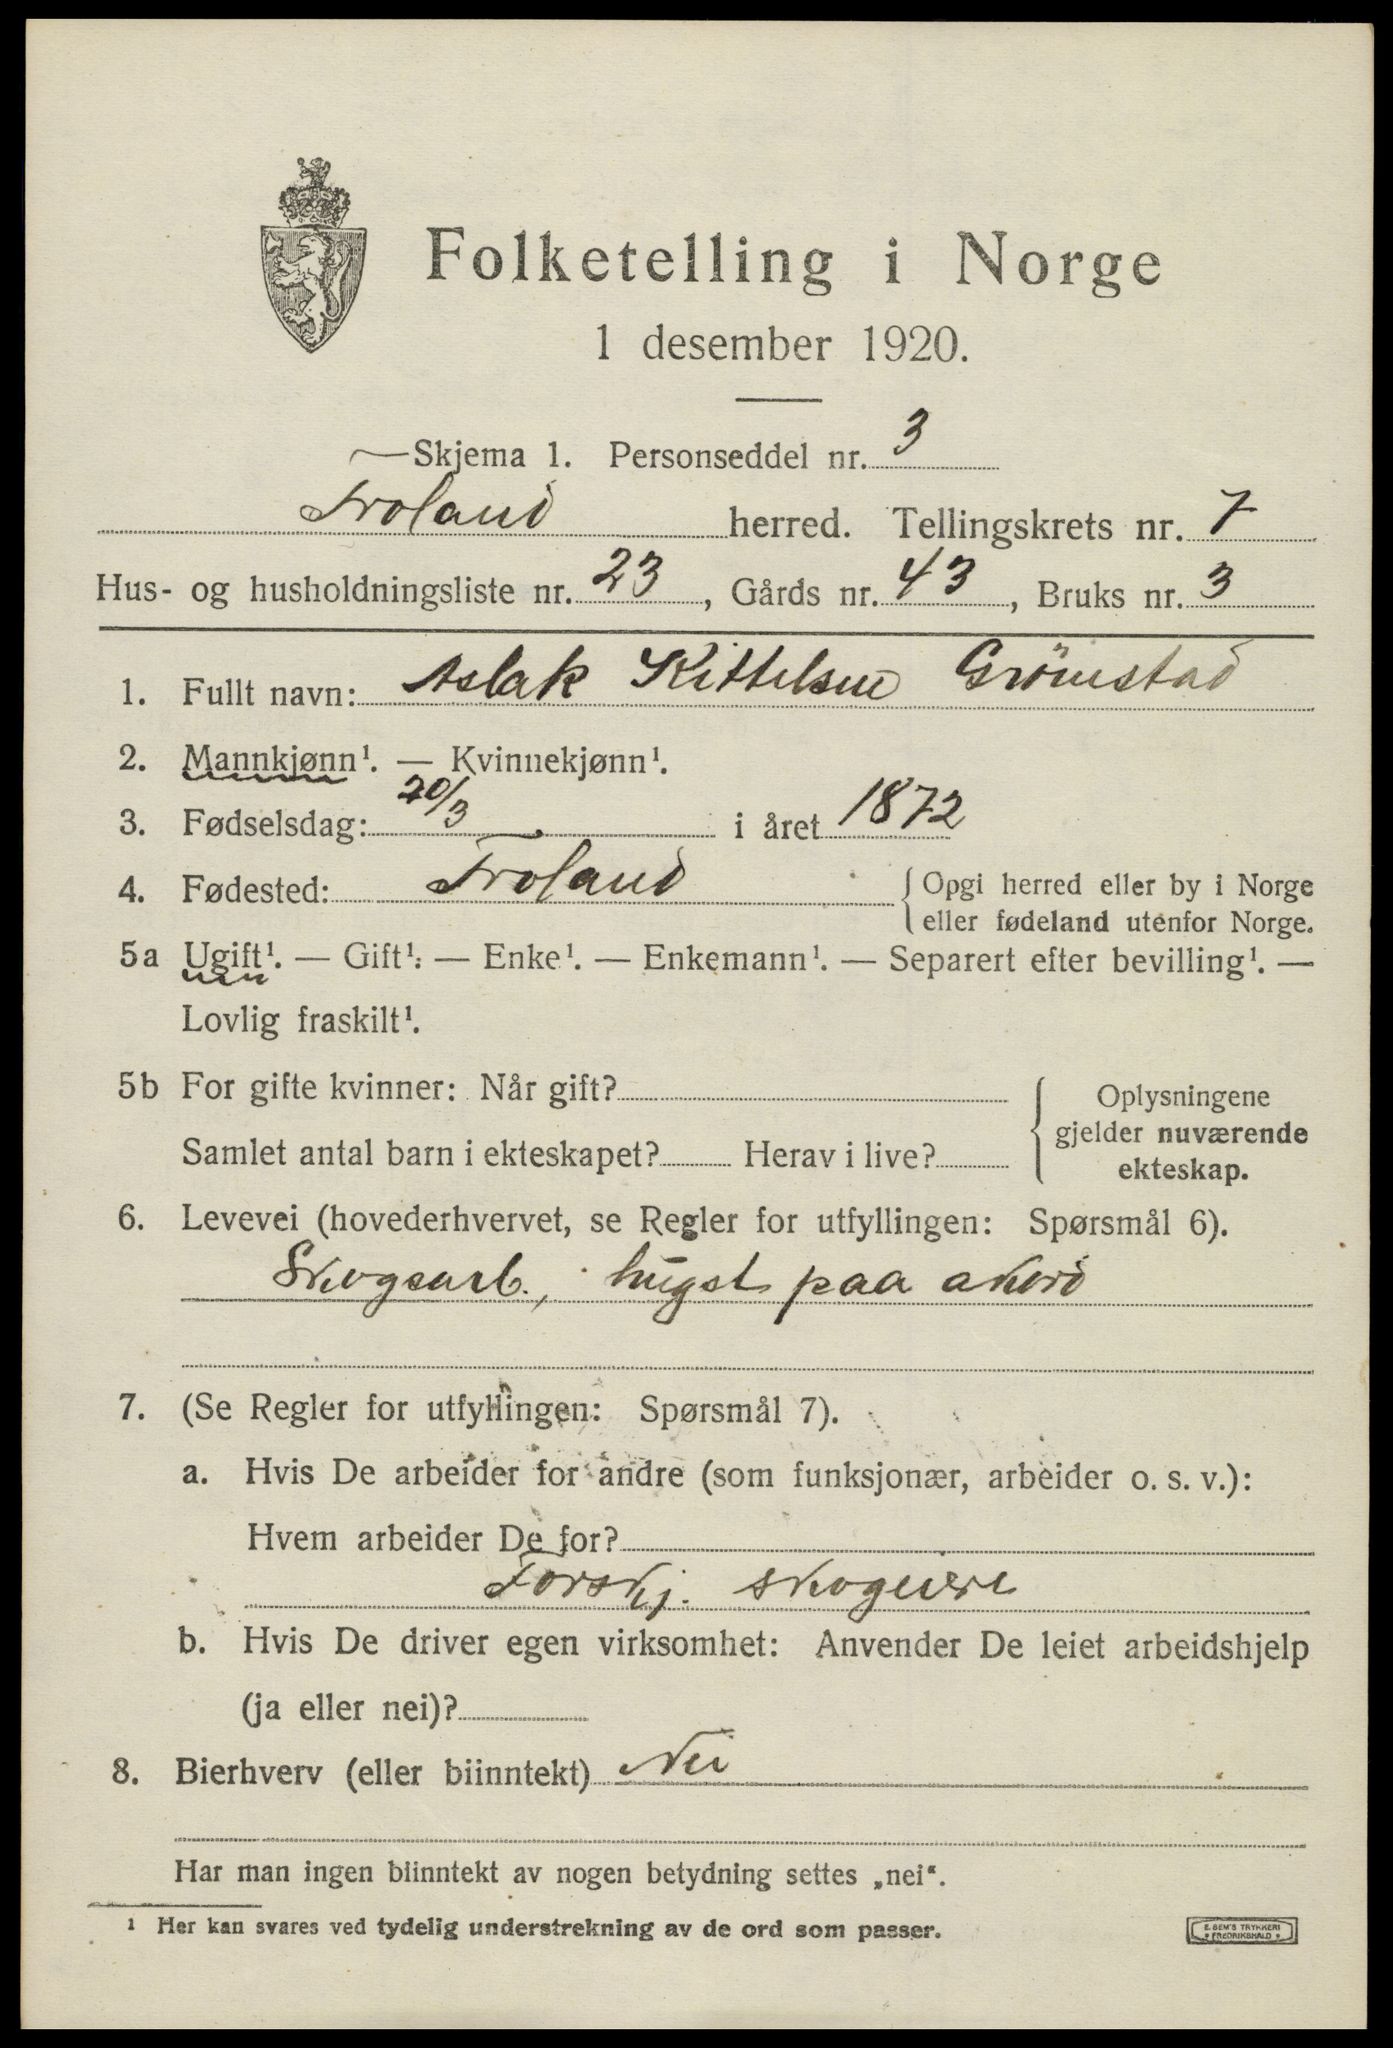 Folketelling i Norge
1 desember 1920.
Skjema 1. Personseddel nr. 3
Froland herred. Tellingskrets nr. 7
Hus- og husholdningsliste nr. 23, Gårds nr. 43, Bruks nr. 3
1. Fullt navn: Aslak Kittelsen Grömstad
2. Mannkjønn¹. — Kvinnekjønn¹.
3. Fødselsdag: 20/3 i året 1872
4. Fødested: Froland { Opgi herred eller by i Norge
eller fødeland utenfor Norge.
5a Ugift¹. — Gift¹. — Enke¹. — Enkemann¹. — Separert efter bevilling¹. —
Lovlig fraskilt¹.
5b For gifte kvinner: Når gift?
Samlet antal barn i ekteskapet? Herav i live?
{ Oplysningene
gjelder nuværende
ekteskap.
6. Levevei (hovederhvervet, se Regler for utfyllingen: Spørsmål 6).
Skogsarb., hugst paa akord
7. (Se Regler for utfyllingen: Spørsmål 7).
a. Hvis De arbeider for andre (som funksjonær, arbeider o. s. v.):
Hvem arbeider De for?
Forskj. skogeiere
b. Hvis De driver egen virksomhet: Anvender De leiet arbeidshjelp
(ja eller nei)?
8. Bierhverv (eller biinntekt) Nei
Har man ingen biinntekt av nogen betydning settes „nei“.
¹ Her kan svares ved tydelig understrekning av de ord som passer.
E. SEM'S TRYKKERI
* FREDRIKSHALD *